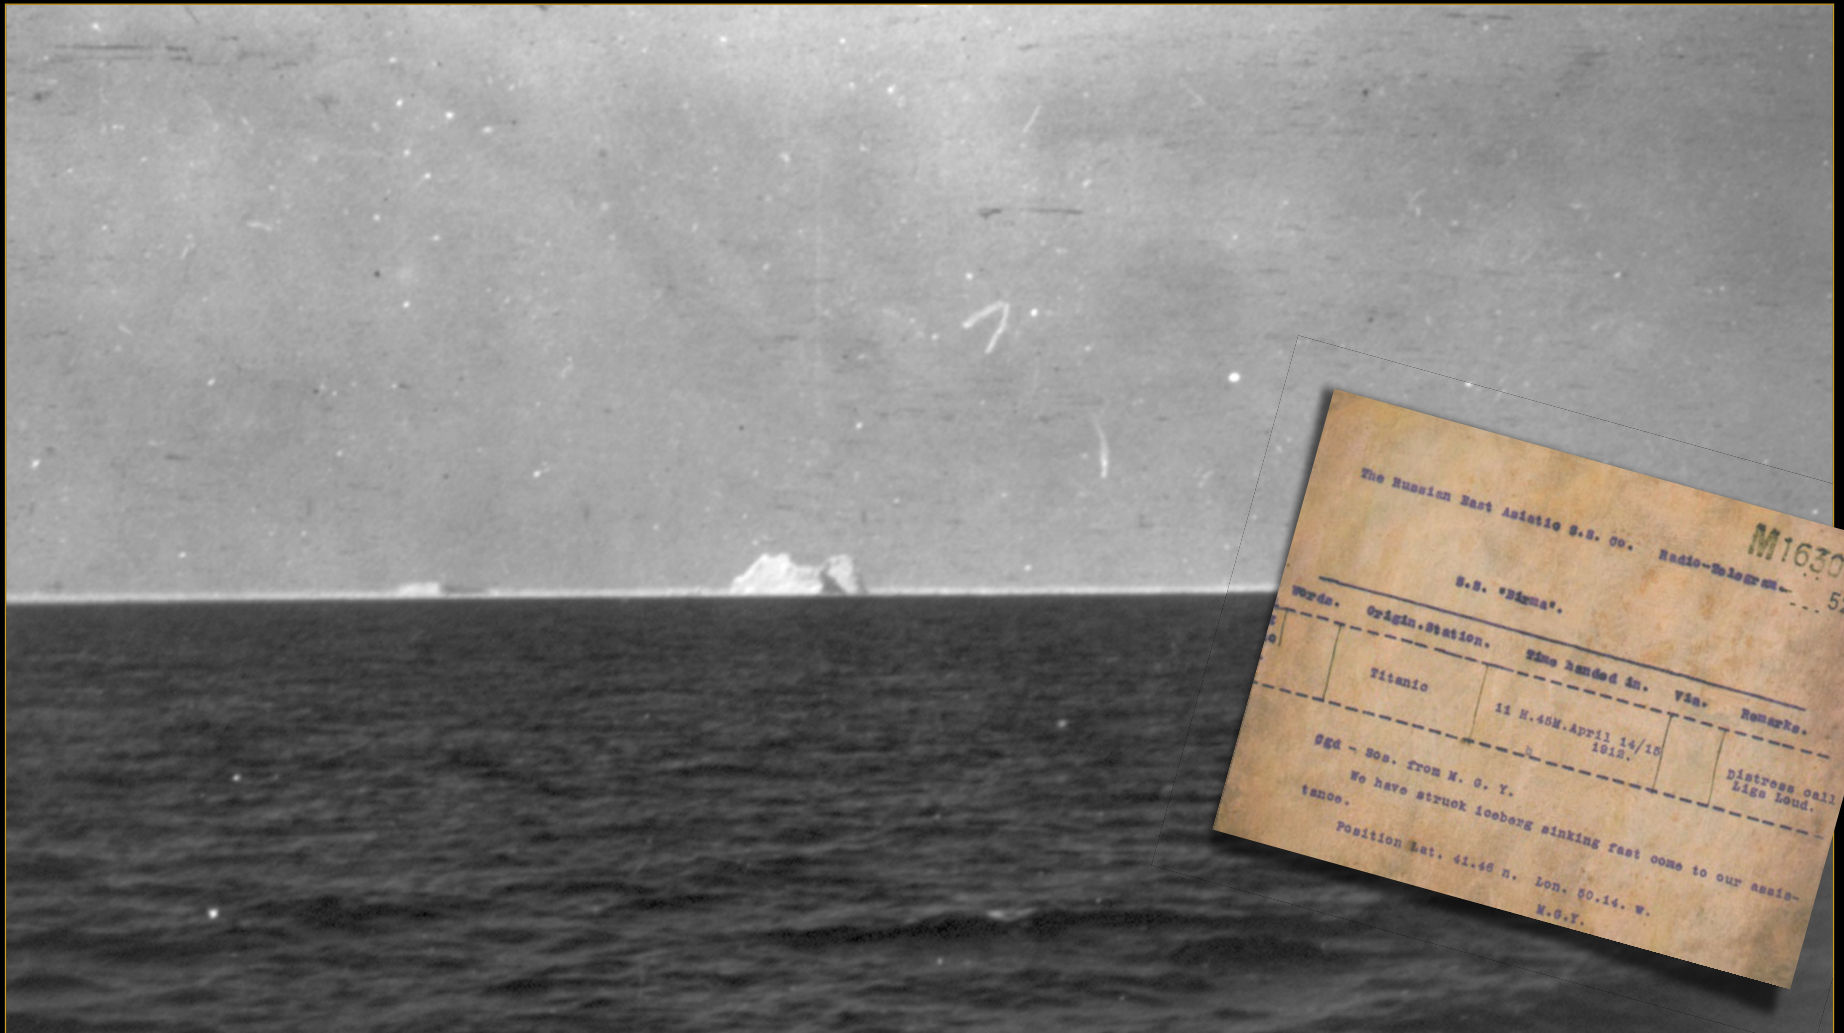 The Russian East Asiatic S.S. Co. Radio-Telegram.
M1630
S.S. "Birma".
Words. Origin.Station. Time handed in. Via. Remarks.
Titanic 11 H.45M.April 14/15 1912. Distress call Ligs Loud.
Cgd - sos. from M. G. Y.
We have struck iceberg sinking fast come to our assis-
tance.
Position Lat. 41.46 n. Lon. 50.14. w.
M.G.Y.